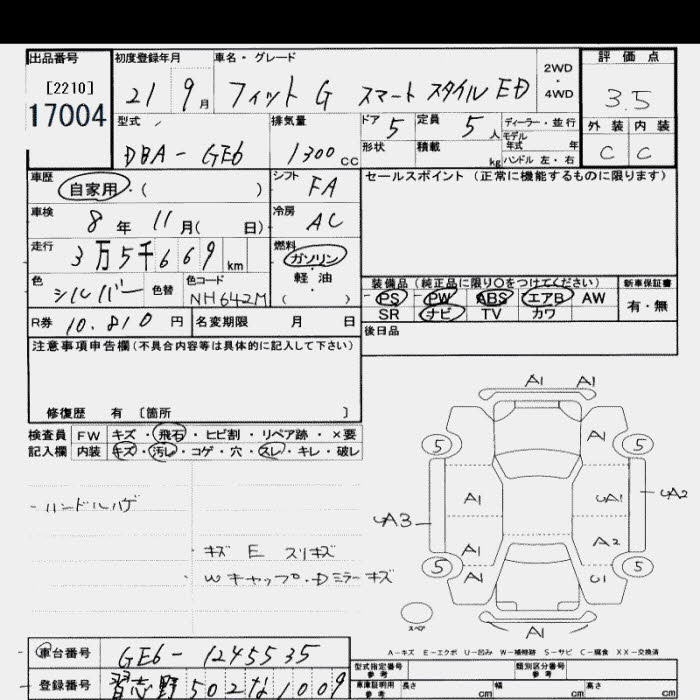 出品番号 初度登録年月 車名・グレード 2WD ・ 4WD 評価点
[2210] 17004 21 9月 フィット G スマート スタイル ED 3.5
型式 排気量 ドア 5 定員 5人 ディーラー・並行 外装 内装
DBA-GE6 1300cc 形状 積載 kg モデル年式 年 C C
ハンドル 左・右
車歴 自家用・( ) シフト FA セールスポイント (正常に機能するものに限ります)
車検 8年 11月( 日) 冷房 AC
走行 3万5千669km 燃料 ガソリン
色 シルバー 色替 色コード NH642M 軽油 ( )
装備品 (純正品に限り○をつけてください) 新車保証書
PS PW ABS エアB AW 有・無
SR ナビ TV カワ
R券 10.810円 名変期限 月 日 後日品
注意事項申告欄(不具合内容等は具体的に記入して下さい)
修復歴 有 〔箇所 〕
検査員 FW キズ・飛石・ヒビ割・リペア跡・×要
記入欄 内装 キズ・汚レ・コゲ・穴・スレ・キレ・破レ
- ハンドルハゲ
・キズ E スリキズ
・Wキャップ・Dミラーキズ
A1 A1
5 A1 5
A1 A1 A2
A3
A1 A2
5 A1 U1 5
スペア
A1
A-キズ E-エクボ U-凹み W-補修跡 S-サビ C-腐食 XX-交換済
車台番号 GE6-1245535 型式指定番号 参考 類別区分番号 参考
登録番号 習志野 502 な 1009 車庫証明用 参考 長さ cm 幅 cm 高さ cm